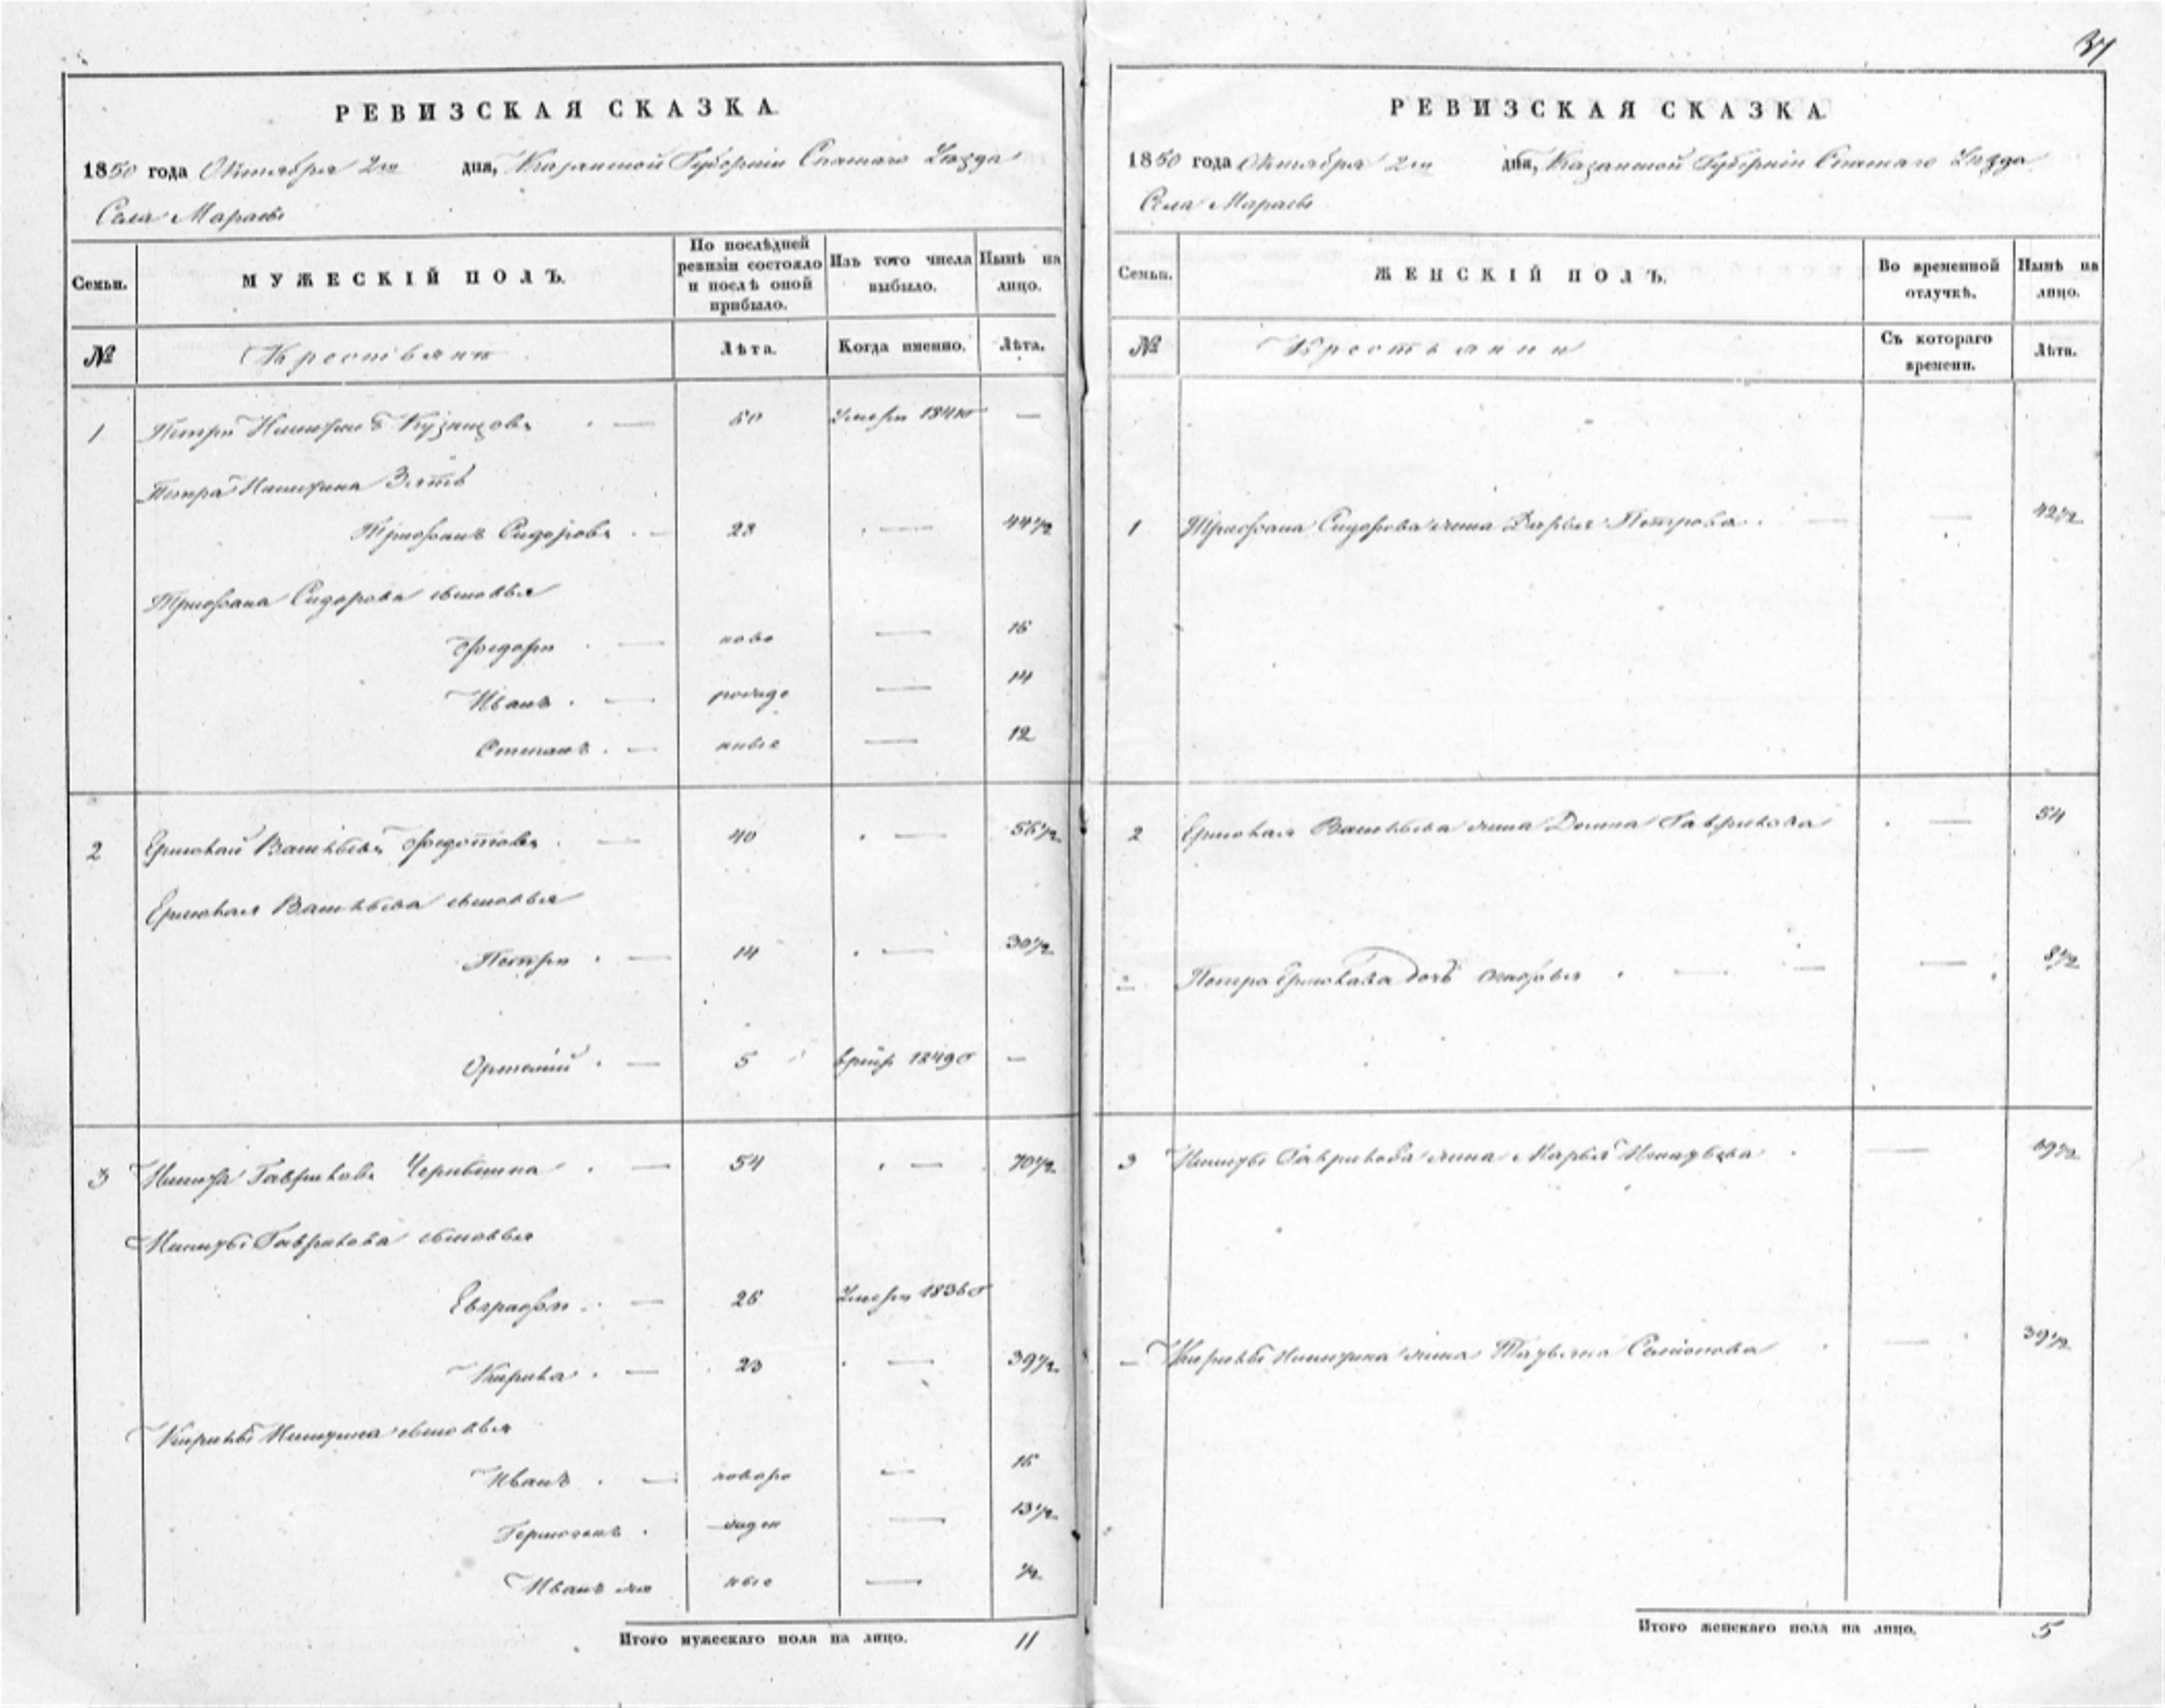 37
РЕВИЗСКАЯ СКАЗКА.
1850 года Октября 2го дня, Казанской Губерніи Спаскаго Уѣзда
Села Мараси
Семьи.
МУЖЕСКІЙ ПОЛЪ.
По послѣдней ревизіи состояло и послѣ оной прибыло.
Изъ того числа выбыло.
Нынѣ на лицо.
№
Крестьяне
Лѣта.
Когда именно.
Лѣта.
1 Петръ Никитинъ Кузнецовъ — 60 Умеръ 1841о —
Петра Никитина Зять
Трифонъ Сидоровъ — 28 — 44½
Трифона Сидорова сыновья
Федоръ — ново — 16
Иванъ — рожде — 14
Степанъ — нные — 12
2 Ермолай Васильевъ Федотовъ — 40 — 56½
Ермолая Васильева сыновья
Петръ — 14 — 30½
Ортемій — 5 1849о —
3 Никита Гавриловъ — 54 — 70½
Никиты Гаврилова сыновья
Евграфъ — 26 Умеръ 1836о
Кирила — 23 — 39½
Кирилы Никитина сыновья
Иванъ — новоро — 16
жден — 13½
Иванъ же ные — ½
Итого мужескаго пола на лицо. 11
РЕВИЗСКАЯ СКАЗКА.
1850 года Октября 2го дня, Казанской Губерніи Спаскаго Уѣзда
Села Мараси
Семьи.
ЖЕНСКІЙ ПОЛЪ.
Во временной отлучкѣ.
Нынѣ на лицо.
№
Крестьянки
Съ котораго времени.
Лѣта.
1 Трифона Сидорова жена Дарья Петрова — — 42½
2 Ермолая Васильева жена Домна Гаврилова — 54
Петра Ермолаева дочь — — 8½
3 Никиты Гаврилова жена Марья — 69½
— Кирилы Никитина жена Татьяна Семіонова — 39½
Итого женскаго пола на лицо. 5